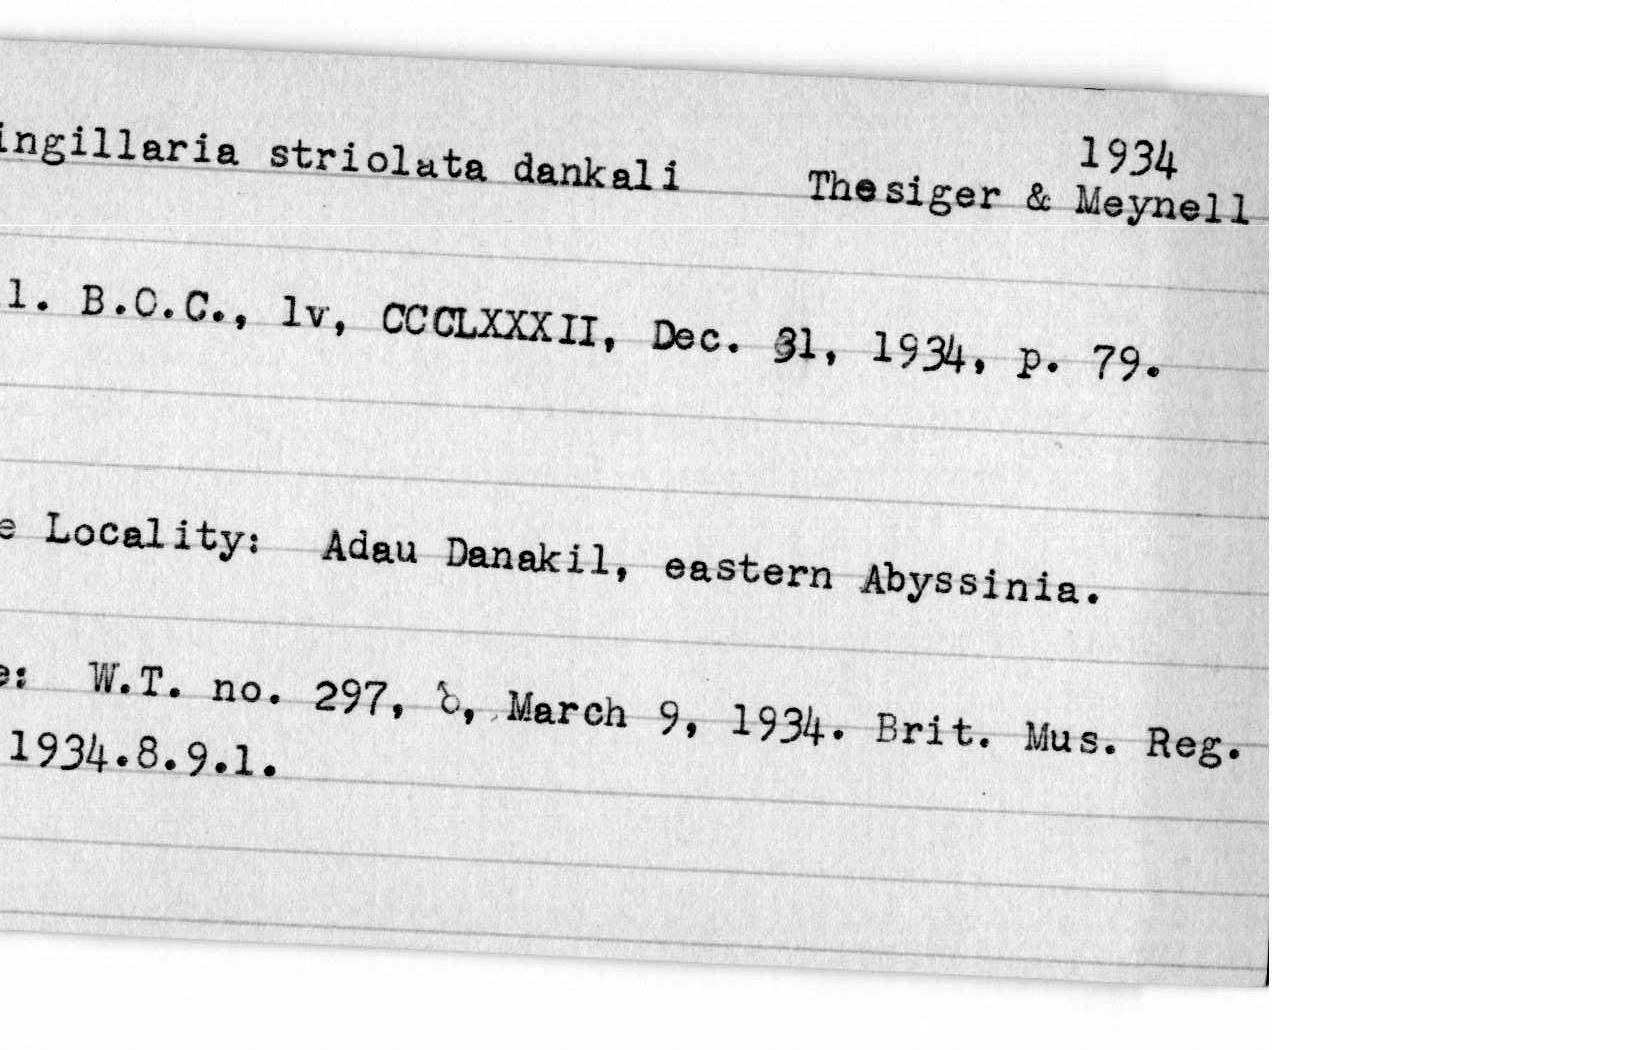 1934
ingillaria striolata dankali Thesiger & Meynell
l. B.O.C., lv, CCCLXXXII, Dec. 31, 1934, p. 79.
e Locality: Adau Danakil, eastern Abyssinia.
e: W.T. no. 297, ♂, March 9, 1934. Brit. Mus. Reg.
1934.8.9.1.